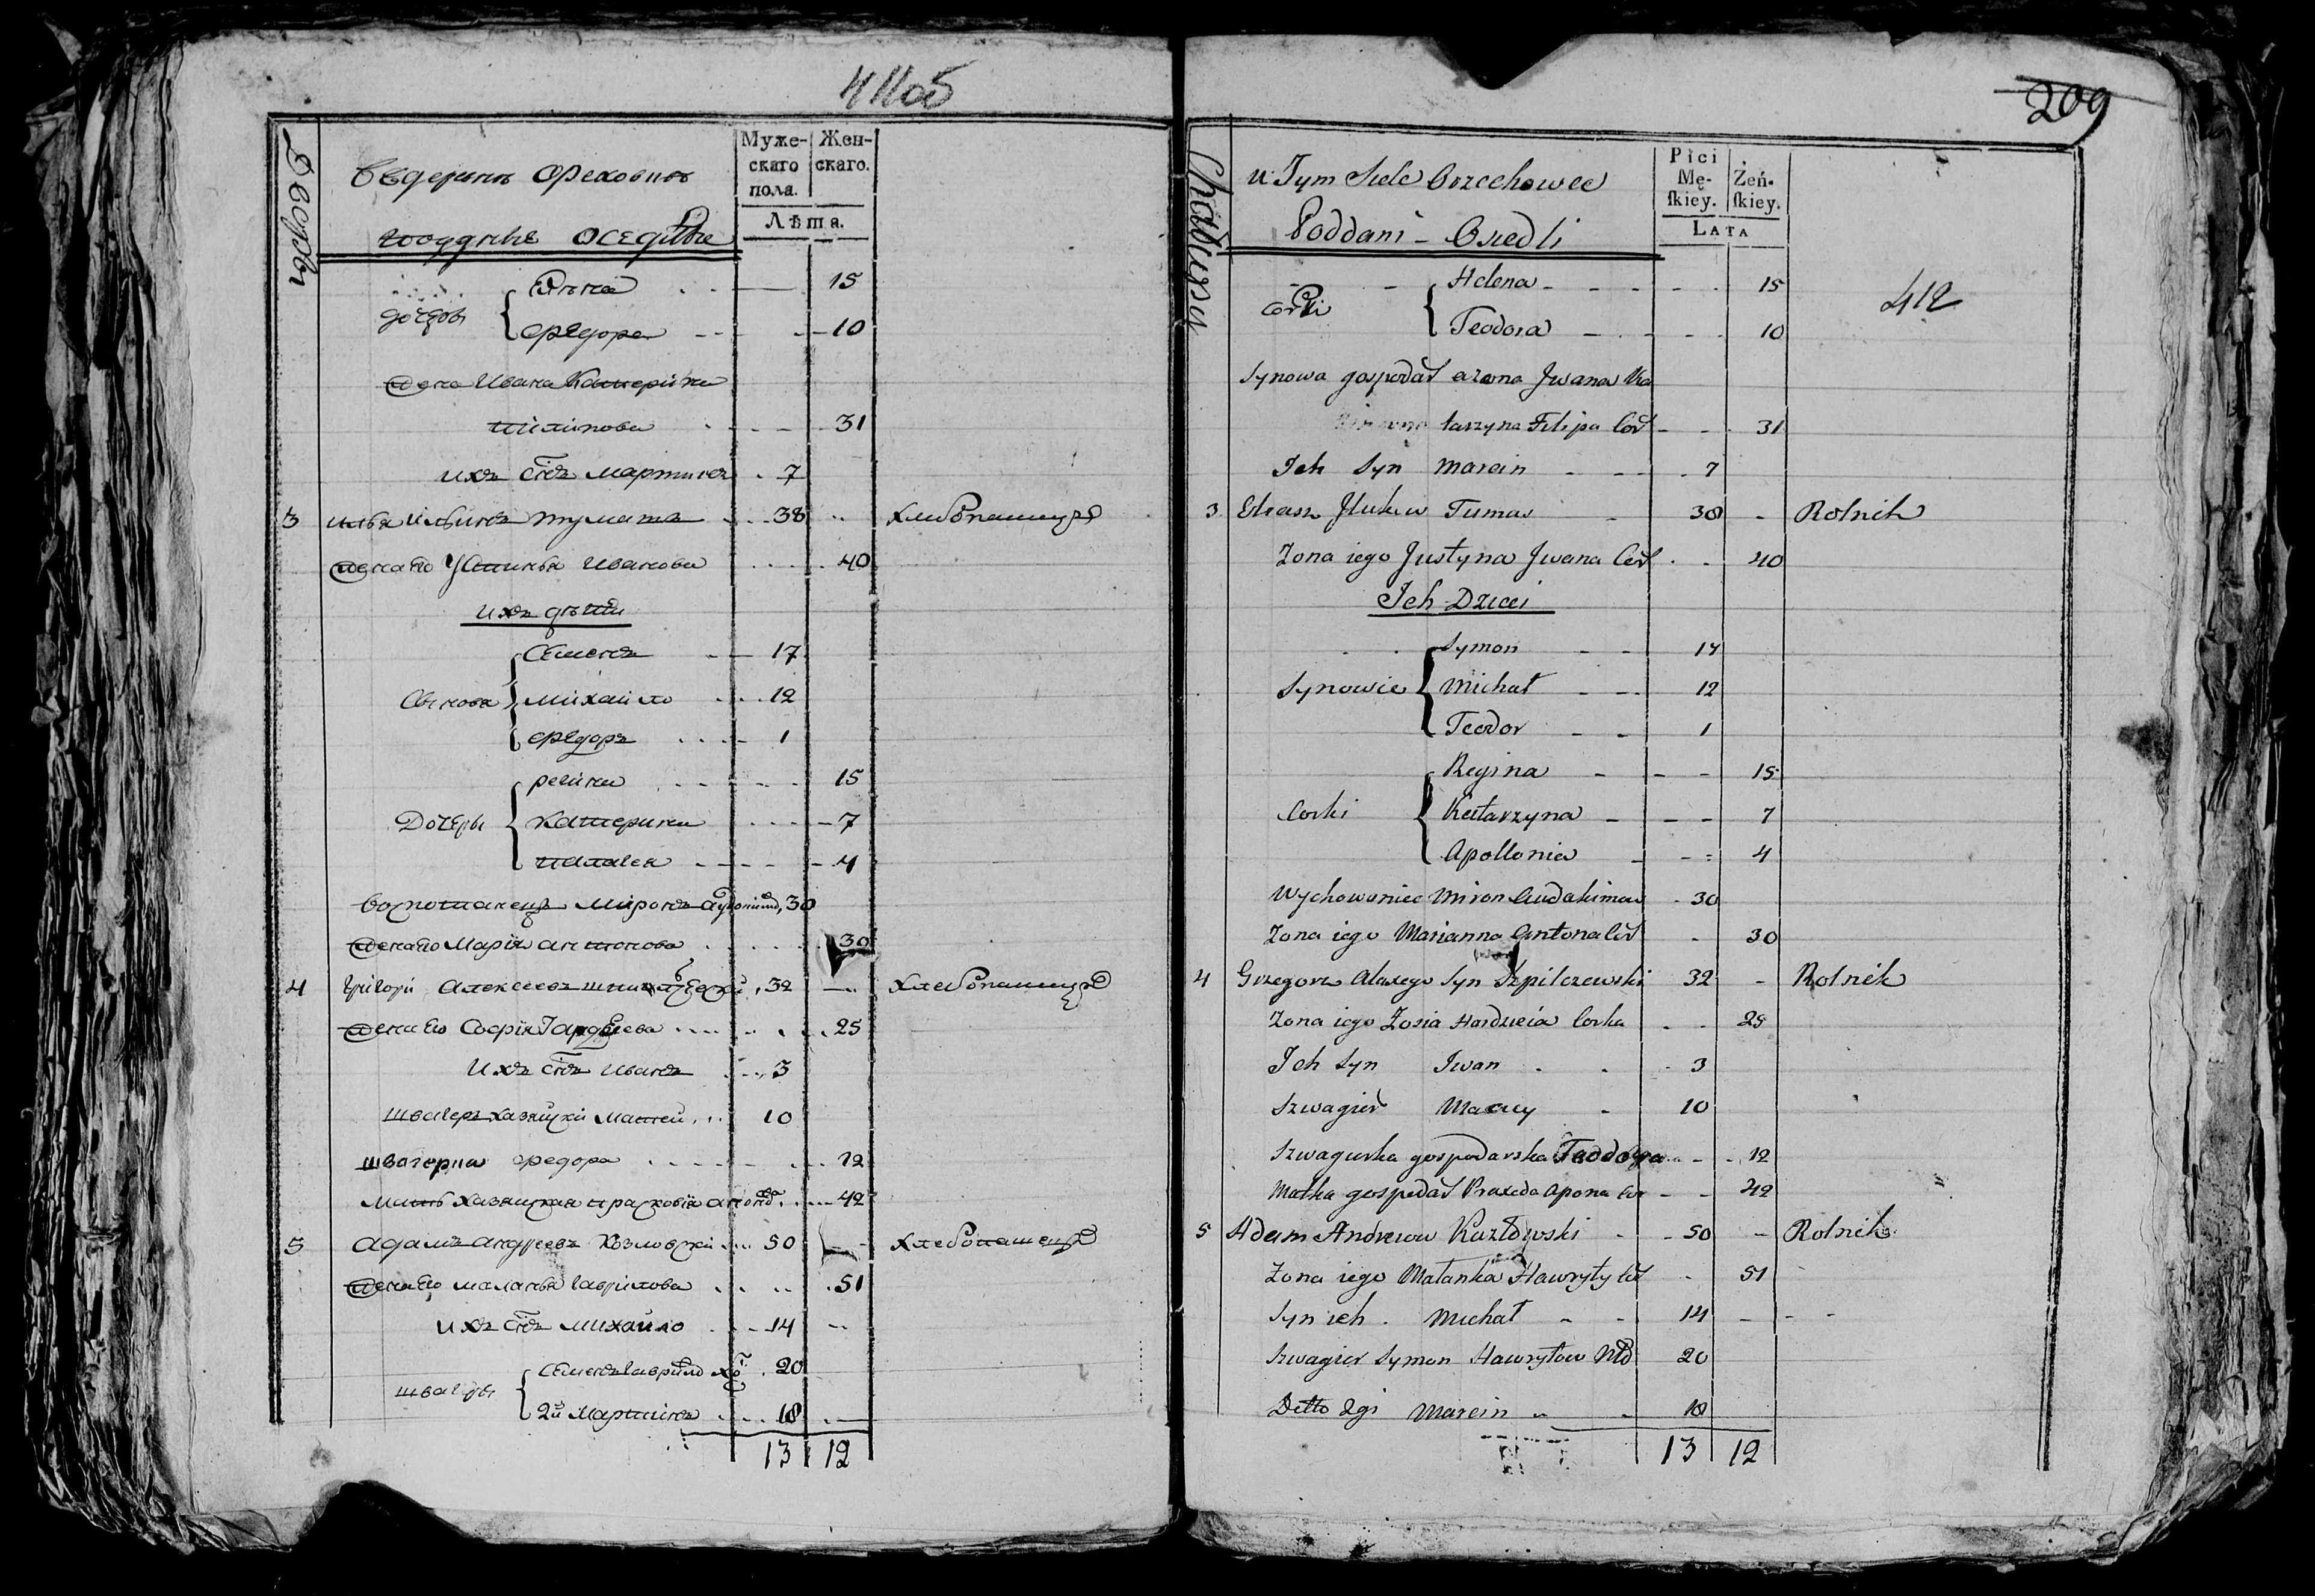 411об
Дворы
Въ деревни Ореховцъ
Мужескаго пола.
Женскаго.
подданые оседлые
Лѣта.
дочеры
Елена 15
Федора 10
жена Ивана Катерина
Пилипова 31
ихъ снъ Мартинъ 7
3 Илья Ильинъ Тумашъ 38 хлебопашецъ
жена его Устинья Иванова 40
ихъ дети
Сынова
Семенъ 17
Михайло 12
Федоръ 1
Дочеры
Регина 15
Катерина 7
Палагея 4
воспитанецъ Миронъ 30
жена его Марія Антонова 30
4 Григорій Алексеевъ Шпильчевскій 32 хлебопашецъ
жена его Софія Гардеева 25
ихъ снъ Иванъ 3
швагеръ хазяйскій Матей 10
швагерка Федора 12
мать хазяйская Прасковія 42
5 Адамъ Андреевъ Козловскій 50 хлебопашецъ
жена его Маланья Гаврилова 51
ихъ снъ Михайло 14
швагеры
Семенъ Гаврилов 20
2й Мартинъ 18
13 12
209
Chałupa
W Tym Siele Orzechowce
Płci Mę-skiey.
Żeń-skiey.
Poddani - Osiedli
LATA
412
Corki
Helena 15
Teodora 10
Synowa gospodar a żona Jwana Ka
tarzyna Filipa Cor 31
Ich Syn Marcin 7
3 Eliasz Jliukow Tumas 38 Rolnik
Zona iego Justyna Jwana Cor 40
Ich Dzieci
Synowie
Symon 17
Michał 12
Teodor 1
Corki
Regina 15
Katarzyna 7
Apollonia 4
Wychowaniec Miron Audakimow 30
Zona iego Marianna Antona Cor 30
4 Grzegorz Alaxego Syn Szpilczewski 32 Rolnik
Zona iego Zosia Hardzieia Corka 25
Ich Syn Iwan 3
Szwagier Maciey 10
Szwagierka gospodarska Teodora 12
Matka gospodar Praxeda Apona Cor 42
5 Adam Andrzeiow Kozłowski 50 Rolnik
Zona iego Matanka Hawryły Cor 51
Syn ich Michał 14
Szwagier Symon Hawryłow Mło 20
Detto 2gi Marcin 18
13 12